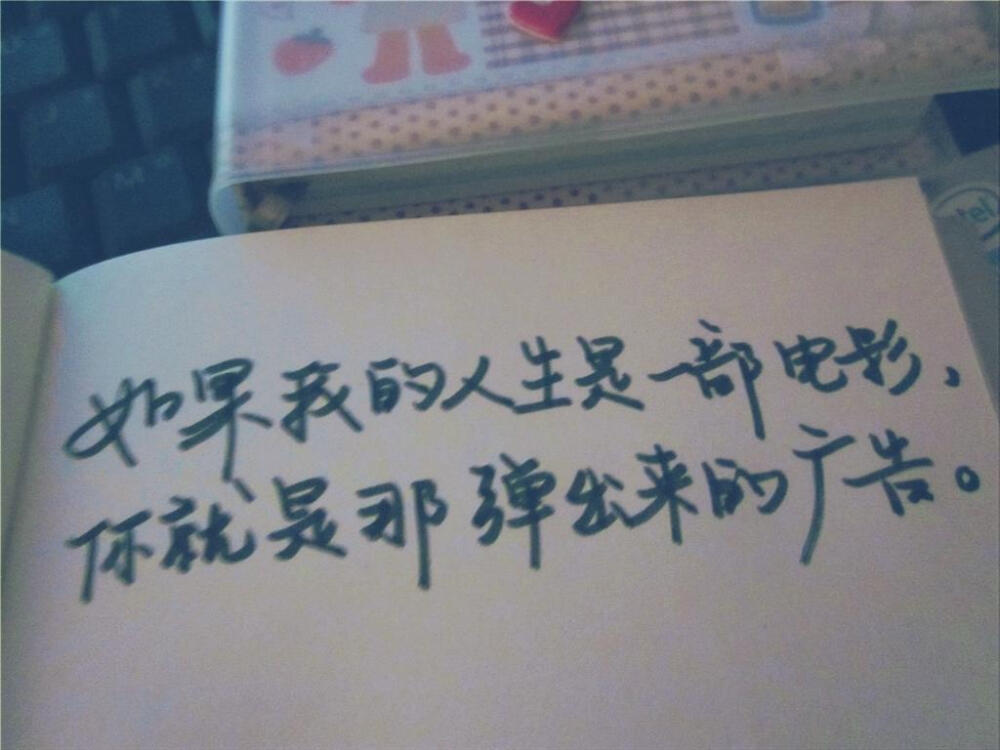 如果我的人生是一部电影，
你就是那弹出来的广告。